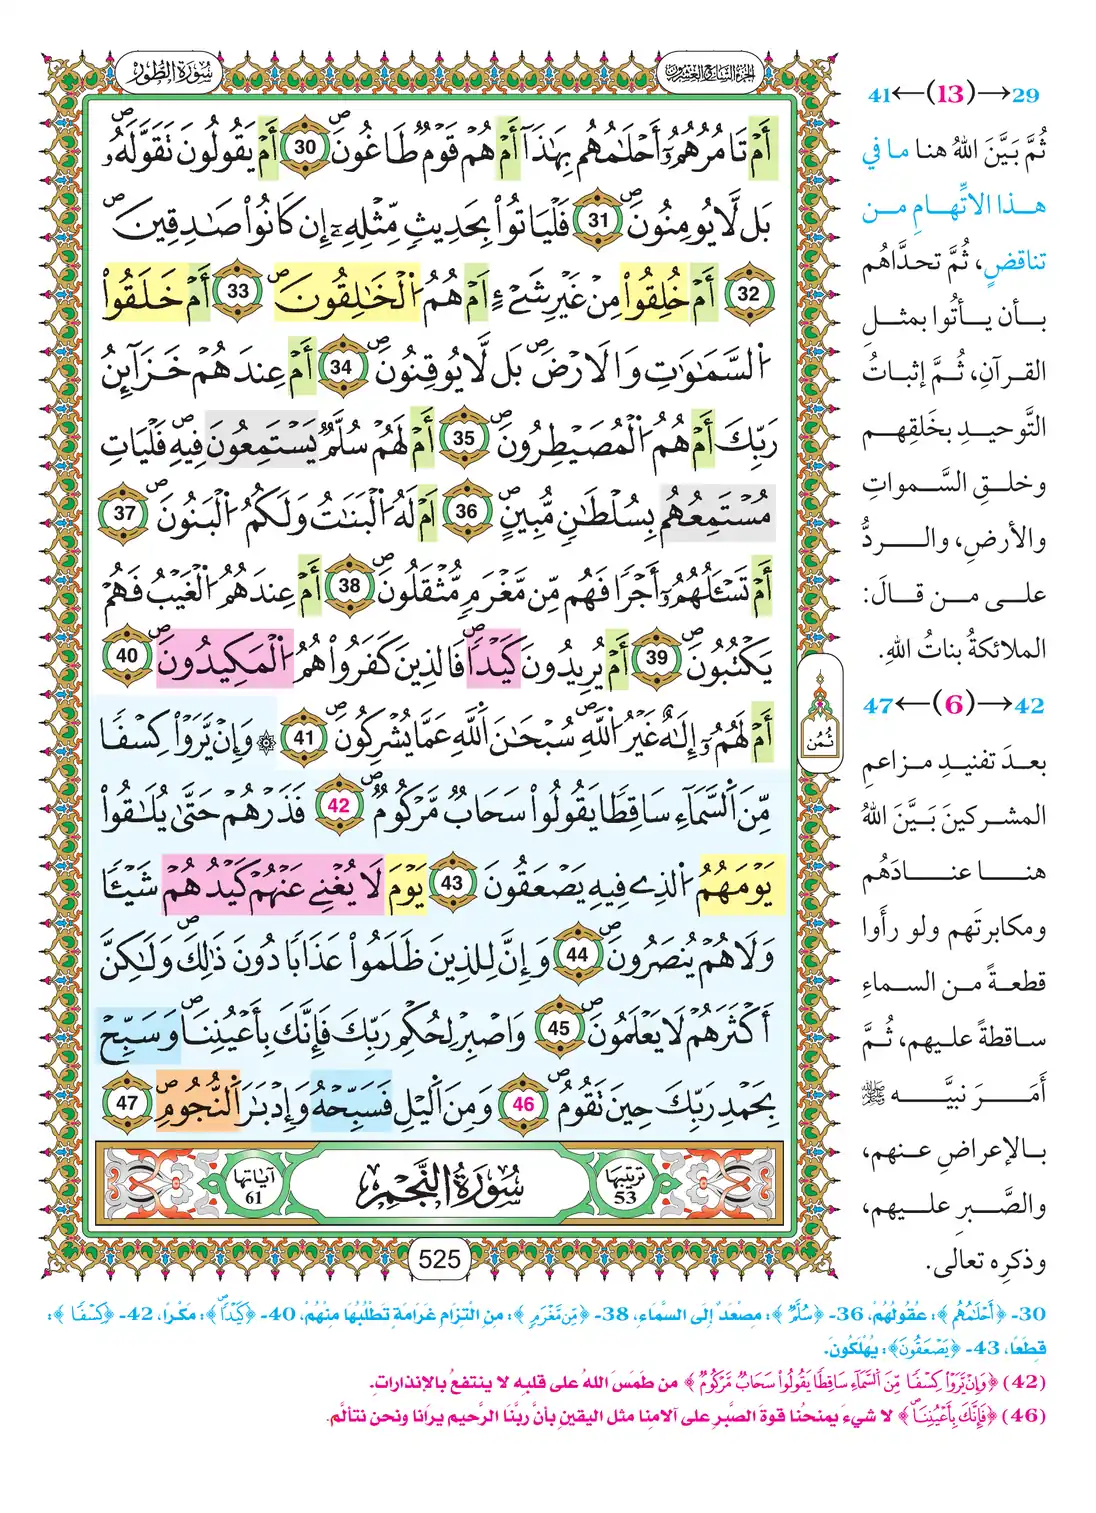 سُورَةُ الطُّورِ
الجُزْءُ السَّابِعُ وَالعِشْرُونَ
أَمْ تَامُرُهُمُۥٓ أَحْلَٰمُهُم بِهَٰذَآ أَمْ هُمْ قَوْمٌ طَاغُونَۖ 30 أَمْ يَقُولُونَ تَقَوَّلَهُۥۖ
بَل لَّا يُومِنُونَۖ 31 فَلْيَاتُوا۟ بِحَدِيثٍ مِّثْلِهِۦٓ إِن كَانُوا۟ صَٰدِقِينَۖ
32 أَمْ خُلِقُوا۟ مِنْ غَيْرِ شَےْءٍ اَمْ هُمُ اُ۬لْخَٰلِقُونَۖ 33 أَمْ خَلَقُوا۟
اُ۬لسَّمَٰوَٰتِ وَالَارْضَۖ بَل لَّا يُوقِنُونَۖ 34 أَمْ عِندَهُمْ خَزَآئِنُ
رَبِّكَ أَمْ هُمُ اُ۬لْمُصَۜيْطِرُونَۖ 35 أَمْ لَهُمْ سُلَّمٌ يَسْتَمِعُونَ فِيهِۖ فَلْيَاتِ
مُسْتَمِعُهُم بِسُلْطَٰنٍ مُّبِينٍۖ 36 اَمْ لَهُ اُ۬لْبَنَٰتُ وَلَكُمُ اُ۬لْبَنُونَۖ 37
أَمْ تَسْـَٔلُهُمُۥٓ أَجْرًا فَهُم مِّن مَّغْرَمٍ مُّثْقَلُونَۖ 38 أَمْ عِندَهُمُ اُ۬لْغَيْبُ فَهُمْ
يَكْتُبُونَۖ 39 أَمْ يُرِيدُونَ كَيْدًاۖ فَالذِينَ كَفَرُوا۟ هُمُ اُ۬لْمَكِيدُونَۖ 40
أَمْ لَهُمُۥٓ إِلَٰهٌ غَيْرُ اُ۬للَّهِۖ سُبْحَٰنَ اَ۬للَّهِ عَمَّا يُشْرِكُونَۖ 41 ۞ وَإِنْ يَّرَوْا۟ كِسْفًا
مِّنَ اَ۬لسَّمَآءِ سَاقِطًا يَقُولُوا۟ سَحَابٌ مَّرْكُومٌۖ 42 فَذَرْهُمْ حَتَّىٰ يُلَٰقُوا۟
يَوْمَهُمُ اُ۬لذِے فِيهِ يَصْعَقُونَ 43 يَوْمَ لَا يُغْنِے عَنْهُمْ كَيْدُهُمْ شَيْـًٔا
وَلَا هُمْ يُنصَرُونَۖ 44 وَإِنَّ لِلذِينَ ظَلَمُوا۟ عَذَابًا دُونَ ذَٰلِكَۖ وَلَٰكِنَّ
أَكْثَرَهُمْ لَا يَعْلَمُونَۖ 45 وَاصْبِرْ لِحُكْمِ رَبِّكَ فَإِنَّكَ بِأَعْيُنِنَاۖ وَسَبِّحْ
بِحَمْدِ رَبِّكَ حِينَ تَقُومُۖ 46 وَمِنَ اَ۬ليْلِ فَسَبِّحْهُ وَإِدْبَٰرَ اَ۬لنُّجُومِۖ 47
ترتيبها
53
سُورَةُ النَّجْمِ
آياتها
61
525
ثُمُن
29→(13)←41
ثُمَّ بَيَّنَ اللهُ هنا ما في
هذا الاتِّهامِ من
تناقضٍ، ثُمَّ تحدَّاهُم
بأن يأتُوا بمثلِ
القرآنِ، ثُمَّ إثباتُ
التَّوحيدِ بخَلقِهم
وخلقِ السَّمواتِ
والأرضِ، والردُّ
على من قالَ:
الملائكةُ بناتُ اللهِ.
42→(6)←47
بعدَ تفنيدِ مزاعمِ
المشركينَ بَيَّنَ اللهُ
هنا عنادَهُم
ومكابرتَهم ولو رأَوا
قطعةً من السماءِ
ساقطةً عليهم، ثُمَّ
أَمَرَ نبيَّه ﷺ
بالإعراضِ عنهم،
والصَّبرِ عليهم،
وذكرِه تعالى.
30- ﴿أَحْلَٰمُهُم﴾: عُقُولُهُمْ، 36- ﴿سُلَّمٌ﴾: مِصْعَدٌ إِلَى السَّمَاءِ، 38- ﴿مِّن مَّغْرَمٍ﴾: مِنِ الْتِزَامِ غَرَامَةٍ تَطْلُبُهَا مِنْهُمْ، 40- ﴿كَيْدًاۖ﴾: مَكْرًا، 42- ﴿كِسْفًا﴾:
قِطَعًا، 43- ﴿يَصْعَقُونَ﴾: يُهْلَكُونَ.
(42) ﴿وَإِنْ يَّرَوْا۟ كِسْفًا مِّنَ اَ۬لسَّمَآءِ سَاقِطًا يَقُولُوا۟ سَحَابٌ مَّرْكُومٌ﴾ من طَمَسَ اللهُ على قلبِه لا ينتفعُ بالإنذاراتِ.
(46) ﴿فَإِنَّكَ بِأَعْيُنِنَاۖ﴾ لا شيءَ يمنحُنا قوةَ الصَّبرِ على آلامِنا مثل اليقينِ بأنَّ ربَّنا الرَّحيم يرَانا ونحن نتألَّم.